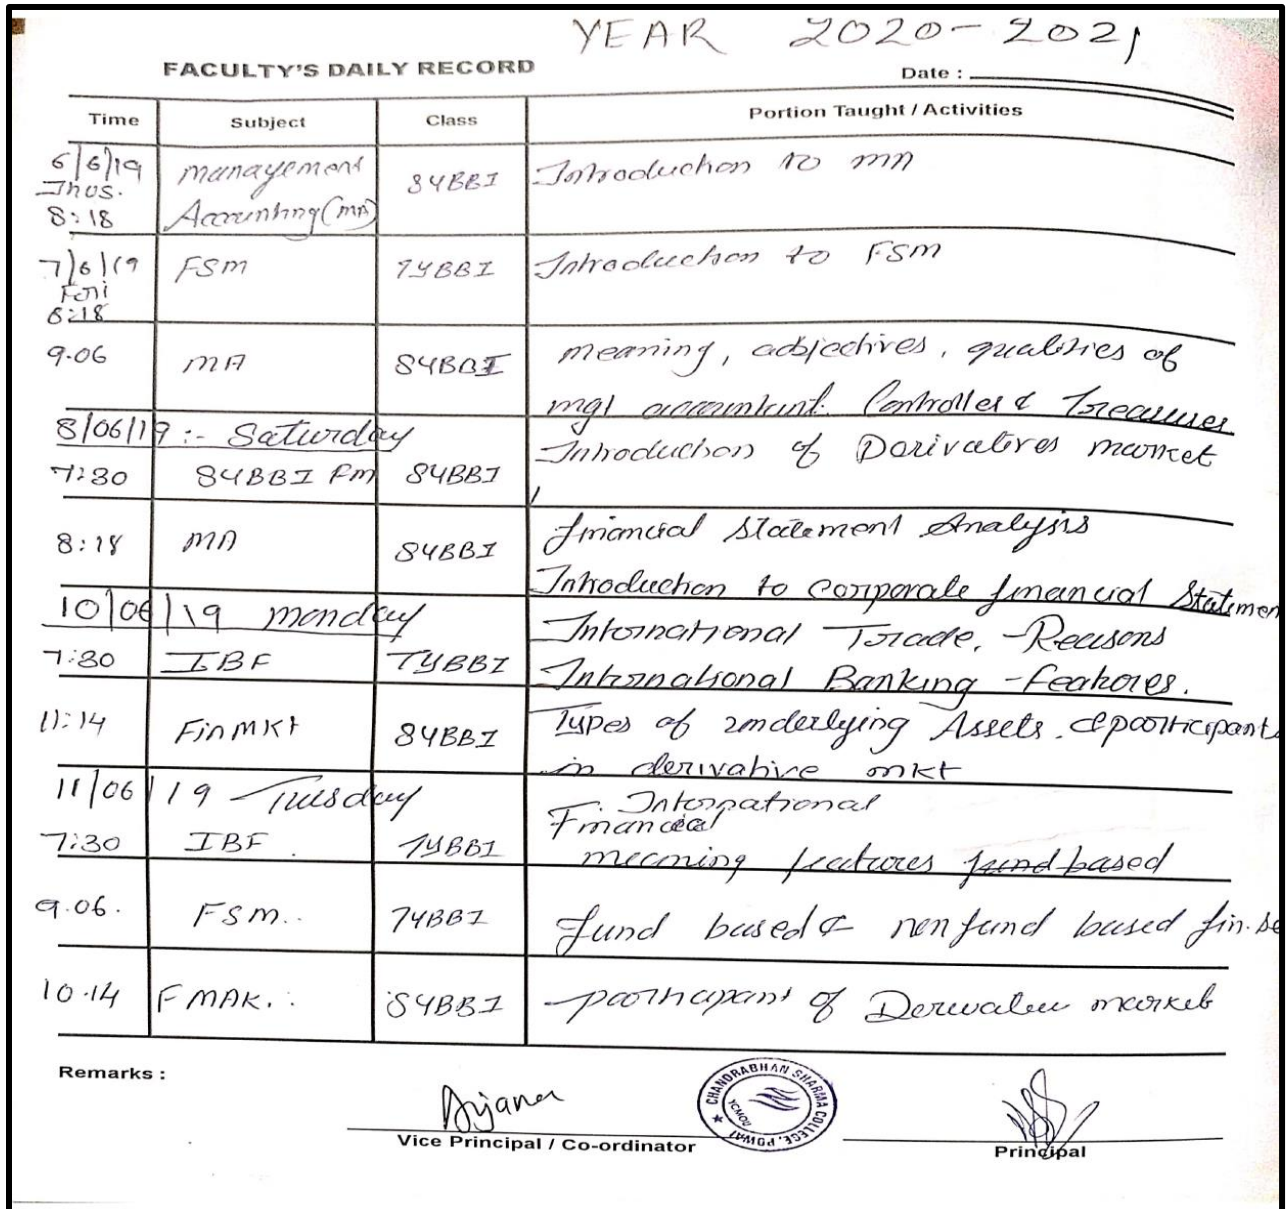 YEAR 2020-2021
FACULTY'S DAILY RECORD
Date :
Time Subject Class Portion Taught / Activities
6/6/19 management SYBBI Introduction to MA
Thus.
8:18 Accounting (MA)
7/6/19 FSM TYBBI Introduction to FSM
Fri
8:18
9.06 MA SYBBI meaning, adbjectives, qualities of
mgt accountant. Controller & Treasurer
8/06/19 :- Saturday
7:30 SYBBI FM SYBBI Introduction of Derivatives market
8:18 MA SYBBI financial Statement Analysis
Introduction to corporate financial Statemen
10/06/19 monday
International Trade. - Reasons
7:30 IBF TYBBI International Banking - features.
11:14 Fin MKt SYBBI Types of underlying Assets. & participant
in derivative mkt
11/06/19 - Tuesday
International
Financial
7:30 IBF TYBBI meaning features fund based
9.06. FSM.. TYBBI fund based & non fund based fin. se
10.14 FMAK. SYBBI participant of Derivative market
Remarks :
Vice Principal / Co-ordinator
CHANDRABHAN SHARMA COLLEGE, POWAI
YCMOU
Principal